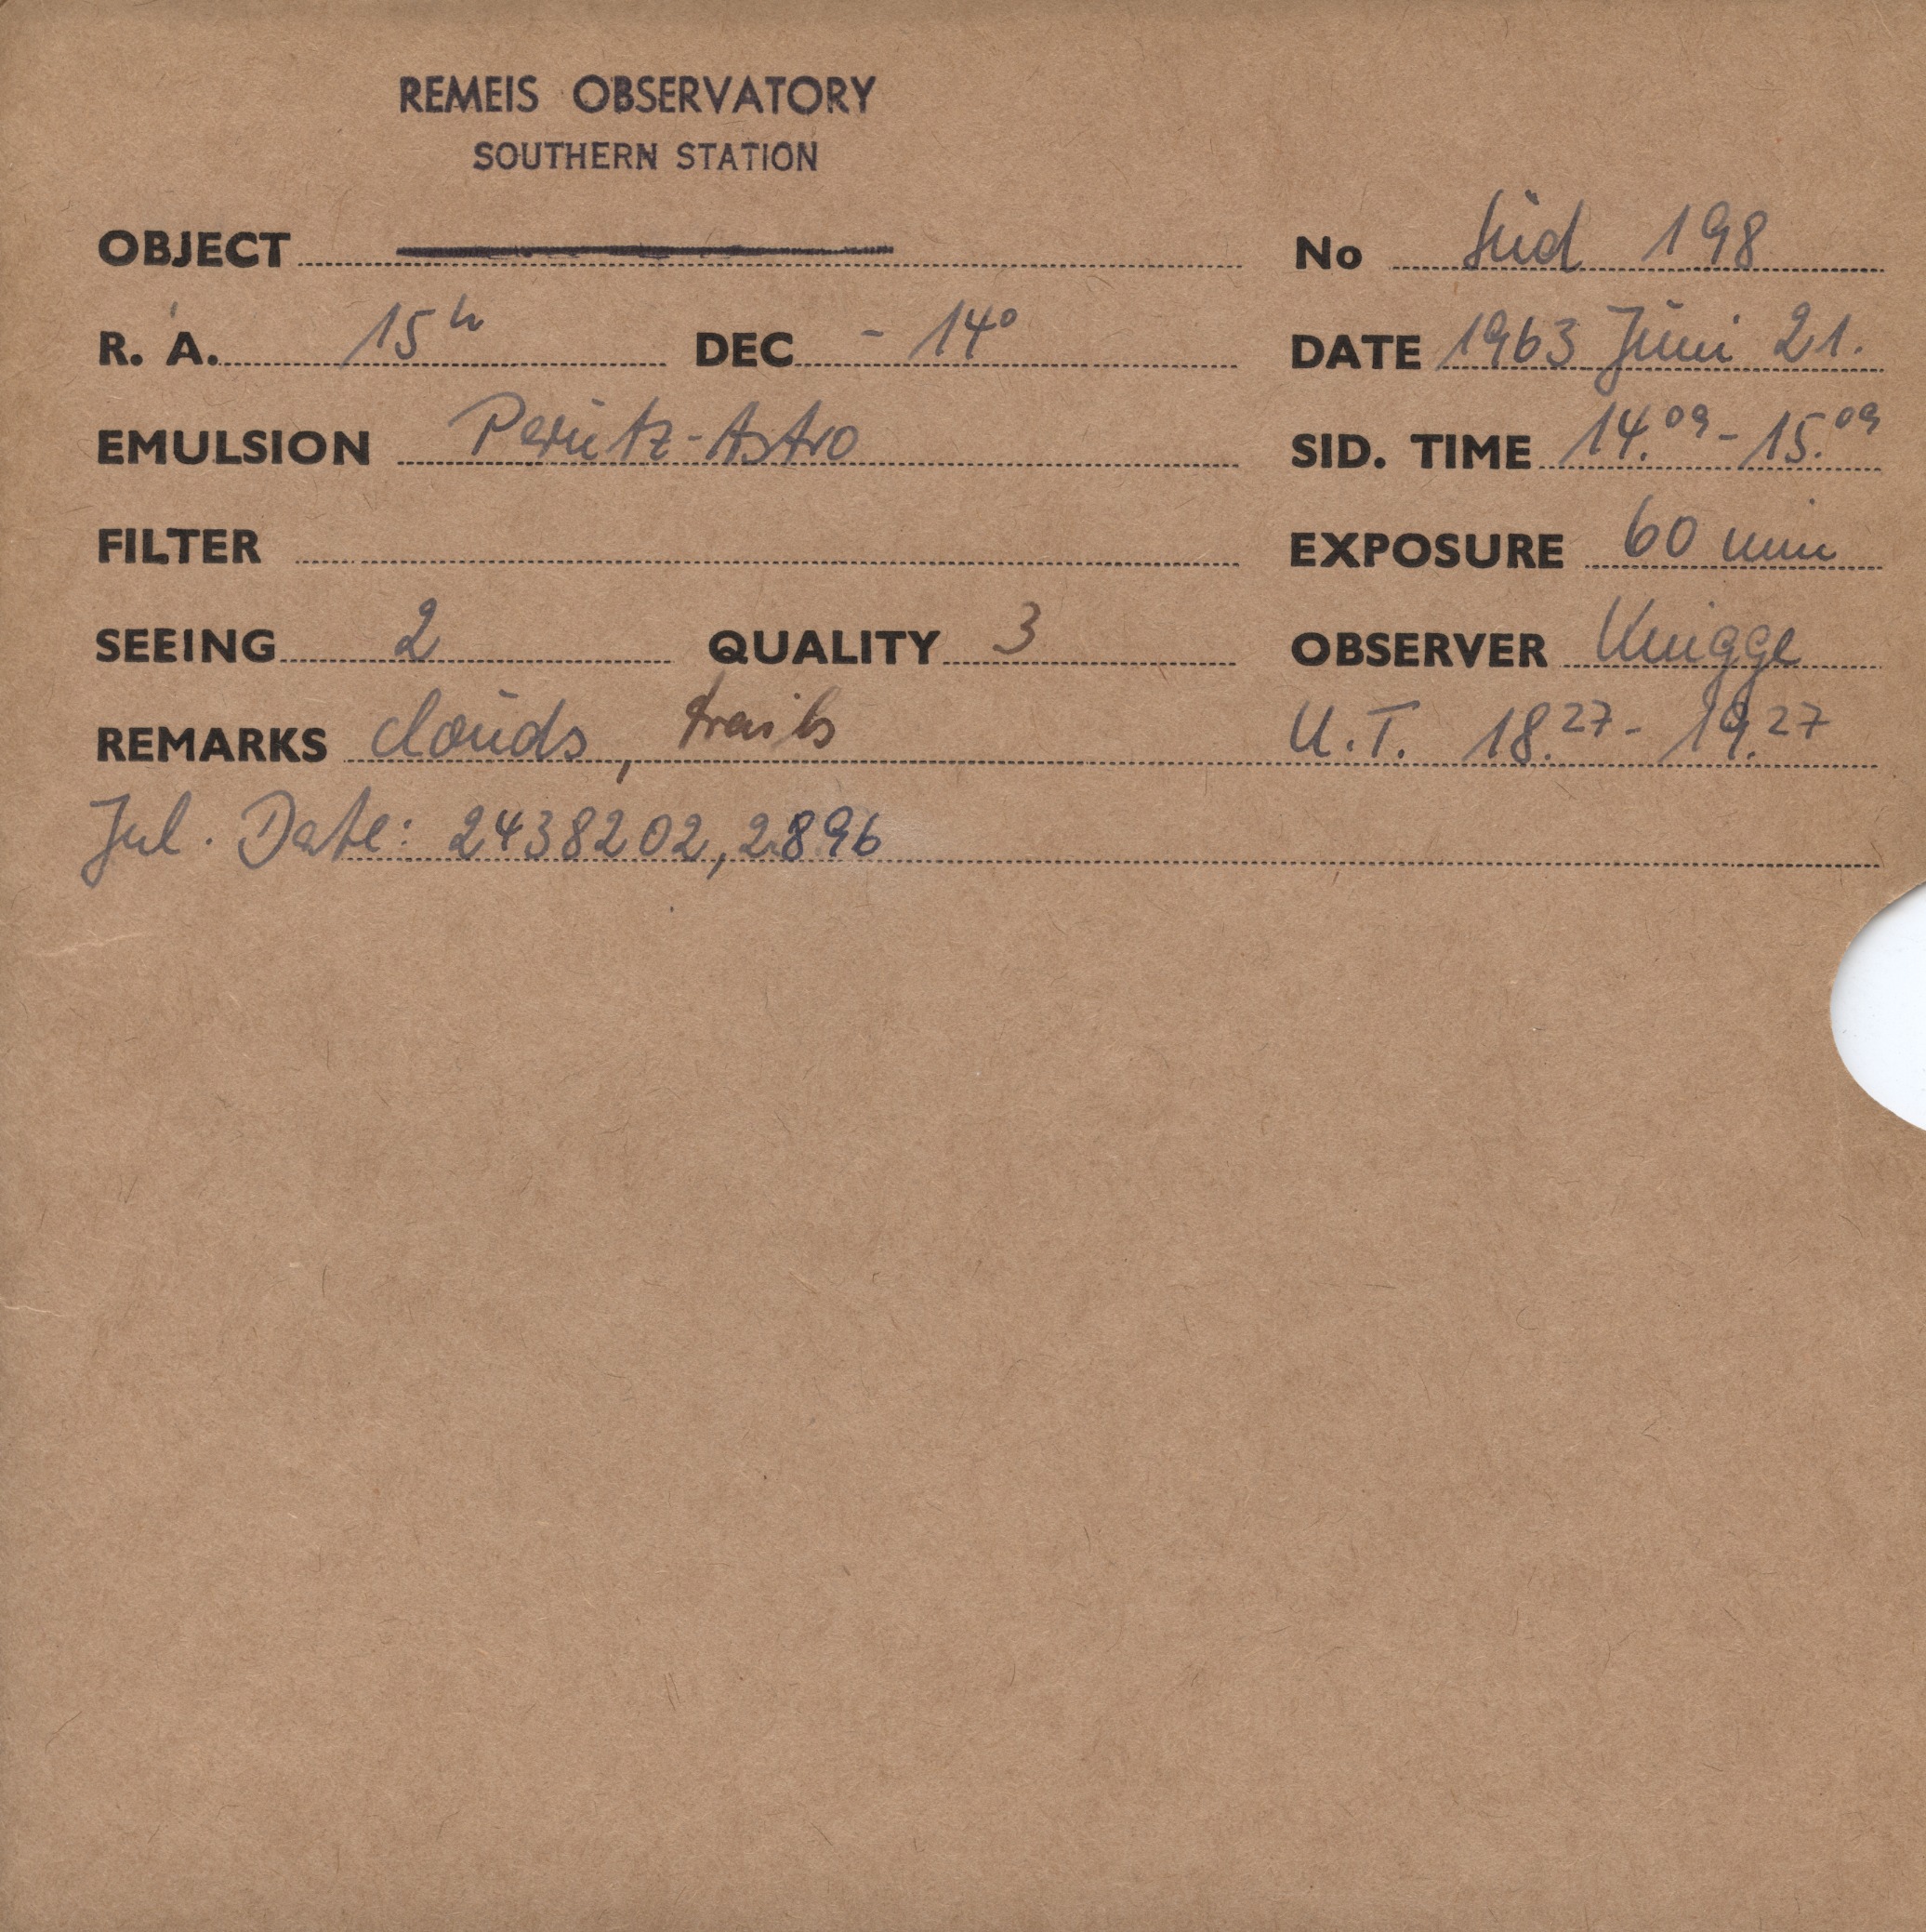 REMEIS OBSERVATORY
SOUTHERN STATION
OBJECT No Süd 198
R. A. 15h DEC - 14° DATE 1963 Juni 21.
EMULSION Perutz-Astro SID. TIME 14.09 - 15.09
FILTER EXPOSURE 60 min
SEEING 2 QUALITY 3 OBSERVER Knigge
REMARKS clouds, trails U.T. 18.27 - 19.27
Jul. Date: 2438202,2896